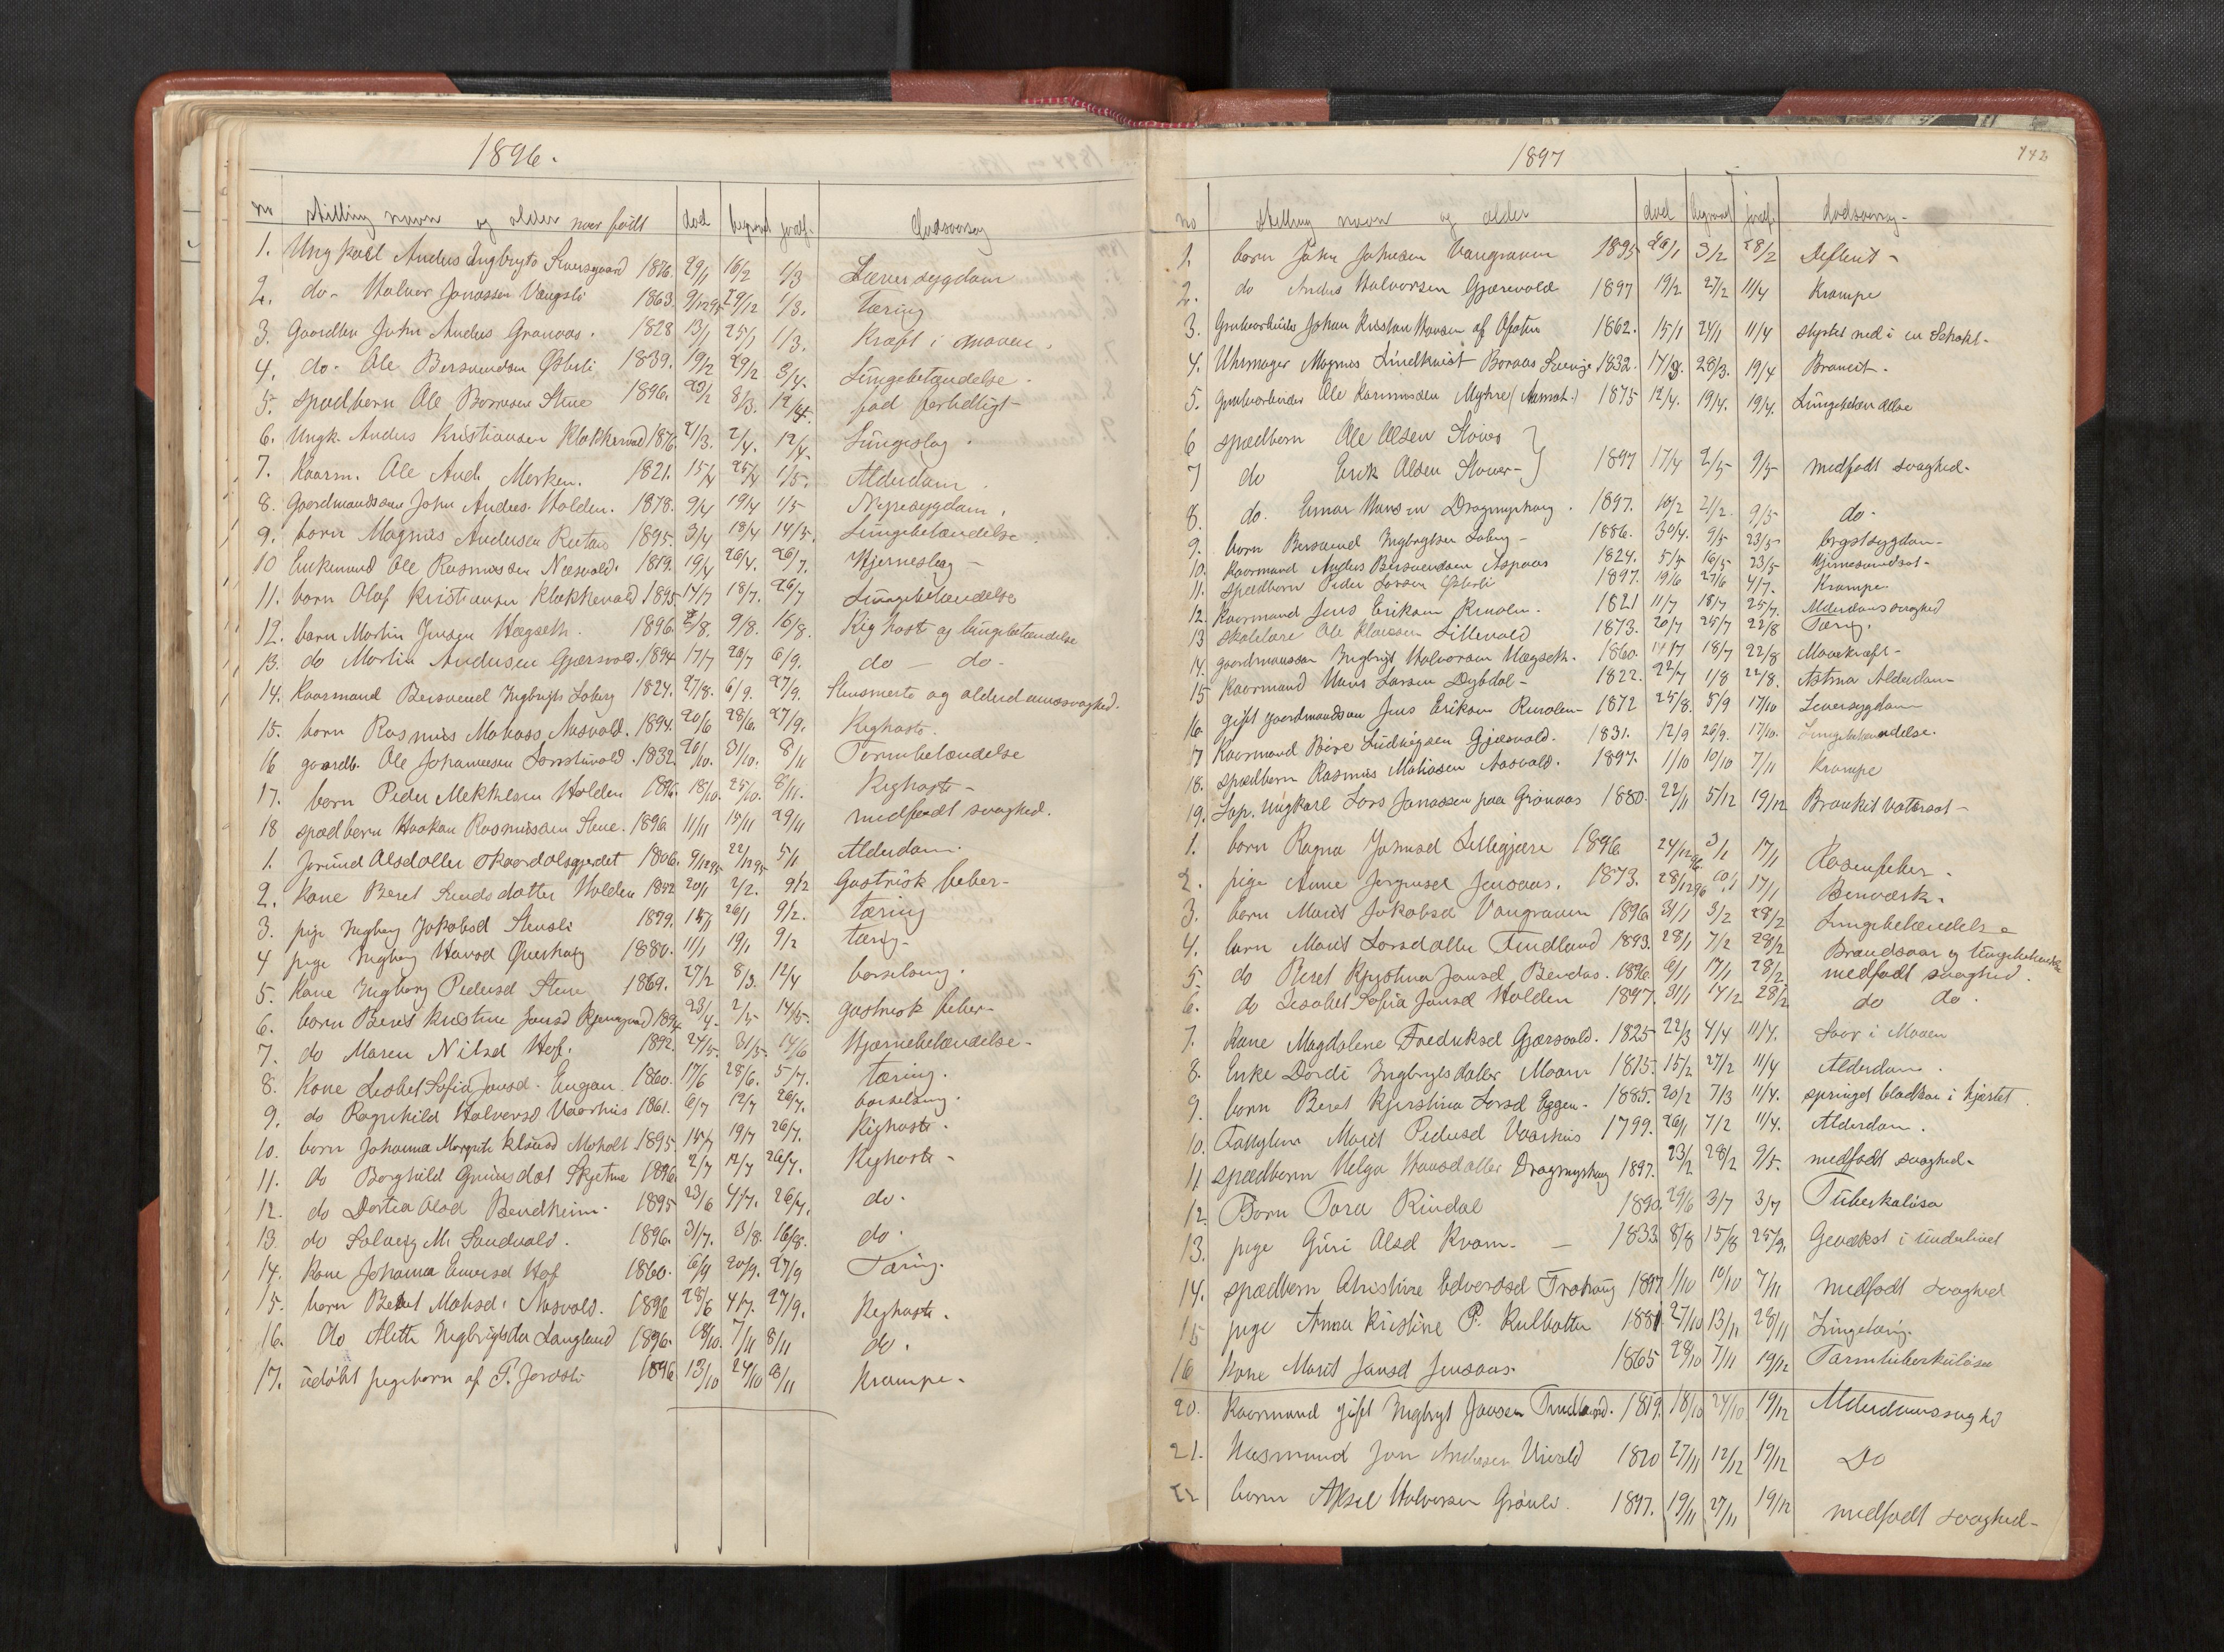 1896.
no stilling navn og alder naar født død begravet jordf. Dødsaarsag
1. Ungkarl Anders Ingbrigts 1876. 29/1 16/2 1/3 Leversygdom
2. do- Halvor Jonassen Vangsli 1863. 9/12 95 29/12 1/3. tæring
3. Gaardbr. John Anders Granaas. 1828 13/1 25/1 1/3. Kræft i maven.
4. do. Ole Bersvendsen Østerli 1839. 19/2 29/2 3/4. Lungebetændelse.
5. spædbarn Ole Stene 1896. 29/2 8/3. 12/4. fød fertidligt-
6. Ungk. Anders Kristiansen Klokkervold 1876. 21/3. 2/4. 12/4. Lungeslag.
7. Kaarm. Ole And. Merken. 1821. 15/4 25/4 1/5. Alderdom.
8. Gaardmandssøn John Anders. Holden. 1878. 9/4 19/4 1/5 Nyresygdom.
9. barn Magnus Andersen 1895 3/4 18/4 14/5. Lungebetændelse
10 Enkemand Ole Rasmussen Næsvold. 1819. 19/4 26/4. 26/7. Hjerneslag-
11. barn Olaf Kristiansen Klokkervold 1895. 14/7 18/7. 26/7 Lungebetændelse
12. barn Martin Jensen Hægseth. 1896. 2/8. 9/8. 16/8. Kighoste og lungebetændelse
13. do Martin Andersen Gjærsvold. 1894 17/7 26/7 6/9. do — do-
14. Kaarmand Bersvend Ingbrigts Loberg 1824. 27/8. 6/9. 27/9. Stensmerte og alderdomssvaghed.
15. barn Rasmus Mahass. Aasvold. 1894. 20/6 28/6. 27/9. Kighoste.
16 gaardb. Ole Johannesen 1832. 20/10. 31/10. 8/11 Tarmbetændelse
17. barn Peder Holden 1896. 18/10. 25/10. 8/11. Kighoste-
18 spædbarn Haakon Rasmussen Stene. 1896. 11/11 15/11 29/11 medfødt svaghed.
1. Jorund Olsdatter Skaardalsgjerdet 1806. 9/12 95 22/12 95 5/1 Alderdom.
2. Kone Beret Holden 1852 20/1 2/2. 9/2 Gastrisk feber-
3. pige Ingborg Jakobsd Stensli 1879. 15/1 26/1 9/2. tæring
4 pige Ingborg Hansd 1880. 11/1 19/1 9/2 tæring-
5. Kone Ingborg Pedersd Stene 1869. 27/2 8/3. 12/4 barselseng.
6. barn Beret Kristine Jonsd 1894. 23/4. 2/5 14/5. gastrisk feber-
7. do Maren Nilsd Hof. 1892. 24/5. 31/5. 14/6 Hjærnebetændelse-
8. Kone Lisbet Sofia Jonsd. Engan 1860. 17/6 28/6. 5/7. tæring.
9. do Ragnhild Halvorsd Vaarhus 1861. 6/7 12/7 26/7. barselseng.
10. barn Johanna Margrete Klausd Moholt 1895. 15/7 19/7 26/7. Kighoste.
11. do Borghild Skjetne 1896. 2/7 12/7 26/7. Kighoste-
12. do Dortea Olsd Bendheim. 1895 23/6 4/7. 26/7. do.
13. do Solveig M. Sandvold. 1896. 31/7. 3/8. 16/8. do.
14. Kone Johanna Hof 1860. 6/9 20/9. 27/9 Tæring.
15. barn Beret Mahsd. Aasvold. 1896 28/6 4/7. 27/9. Kighoste.
16. do Alette Langland 1896. 18/10. 7/11 8/11 do.
17. udøbt pigebarn af P. Jordsli 1896 13/10 24/10 8/11 Krampe.
1897
142
no Stilling navn og alder død begravet jordf. dødsaarsag-
1. barn John Johnsen Vangraven 1895 26/1 3/2 28/2 Defterit-
2. do Anders Halvorsen Gjærevold 1897 19/2 27/2 11/4 Krampe
3. Grubearbeider Johan Kristian Hansen af Ofoten 1862. 15/1 24/1 11/4 styrtet ned i en Schakt-
4. Uhrmager Magnus Lindkvist Boraas Sverige 1832. 17/3. 28/3. 19/4 Bronkit.
5. Grubearbeider Ole Myhre (Aamot.) 1875 12/4. 19/4. 19/4. Lungebetændelse
6 spædbarn Ole Olsen
7 do Erik Olsen 1897 17/4 2/5 9/5 medfødt svaghed-
8. do. Einar Hansen Dragmyrhaug. 1897. 10/2 21/2. 9/5 do-
9. barn Bersvend Ingbrigtsen Loberg- 1886. 30/4. 9/5 23/5 brystsygdom-
10. Kaarmand Anders Bersvendsen Aspaas 1824. 5/5 16/5 23/5
11. spædbarn Peder Larsen Østerli 1897. 19/6 27/6 4/7. Krampe
12. Kaarmand Jens Eriksen 1821 11/7 18/7 25/7. Alderdomssvaghed
13 skolelærer Ole Klaussen Lillevold 1873. 20/7 25/7 22/8 Tæring.
14. gaardmandssøn Ingbrigt Halvorsen Hægseth. 1860. 14/7 18/7 22/8 Mavekræft-
15 Kaarmand Hans Larsen Dybdal- 1822. 22/7 1/8 22/8. Astma Alderdom-
16. gift gaardmandssøn Jens Eriksen 1872 25/8. 5/9 17/10 Leversygdom
17 Kaarmand Ludvigsen Gjæsvold. 1831. 12/9 26/9. 17/10. Lungebetændelse.
18. spædbarn Rasmus Mahasen Aasvold. 1897. 1/10 10/10 7/11 Krampe
19. Lap. Ungkarl Lars Jonassen paa Grønaas 1880. 22/11 5/12 19/12 Bronkit vatersot-
1. barn Ragna Johnsd Lillegjære 1896 24/12 96. 3/1 17/1 Rosenfeber.
2. pige Anne Jørgensd Jensaas. 1873. 28/12 96 10/1 17/1 Benværk.
3. barn Marit Jakobsd Vangraven 1896. 31/1 3/2 28/2 Lungebetændelse
4. barn Marit Larsdatter Tindland 1893. 28/1 7/2 28/2 Brandsaar og lungebetændelse
5. do Beret Kjystina Jonsd Bendos. 1896. 6/1 17/1 28/2 medfødt svaghed.
6. do Lisabet Sofia Jonsd Holden 1897. 31/1 14/2 28/2 do do.
7. Kone Magdalene Fredriksd Gjærsvold. 1825 22/3 4/4 11/4. Saar i Maven
8. Enke Dordi Ingbrigtsdatter Moan 1815. 15/2 27/2 11/4 Alderdom.
9. barn Beret Kjerstina Larsd Eggen- 1885. 20/2 7/3 11/4. springet blodkar i hjertet
10. Fattiglem Marit Pedersd Vaarhus 1799. 26/1 7/2 11/4. Alderdom.
11 spædbarn Helga Hansdatter Dragmyrhaug 1897. 23/2 28/2 9/5. medfødt svaghed.
12. Barn Tora Rindal 1890. 29/6 3/7 3/7 Tuberkuløsa
13. pige Guri Olsd Kvam. — 1833. 8/8 15/8 25/9. Gevækst i underlivet
14. spædbarn Christine Edvardsd 1897 1/10 10/10 7/11 medfødt svaghed
15 pige Anna Kristine P. Rulbotten 1881. 27/10 13/11 28/11 Lungetæring.
16 Kone Marit Jonsd Jensaas. 1865 28/10 7/11 19/12 Tarmtuberkuløsa
20. Kaarmand gift Ingbrigt Jonsen Tindland. 1819. 18/10 24/10 19/12 Alderdomssvaghed
21. Husmand Jon Andersen 1820 27/11 12/12 19/12 Do
22 barn Aksel Halvorsen Grønli. 1897. 19/11 27/11 19/12 medfødt svaghed-